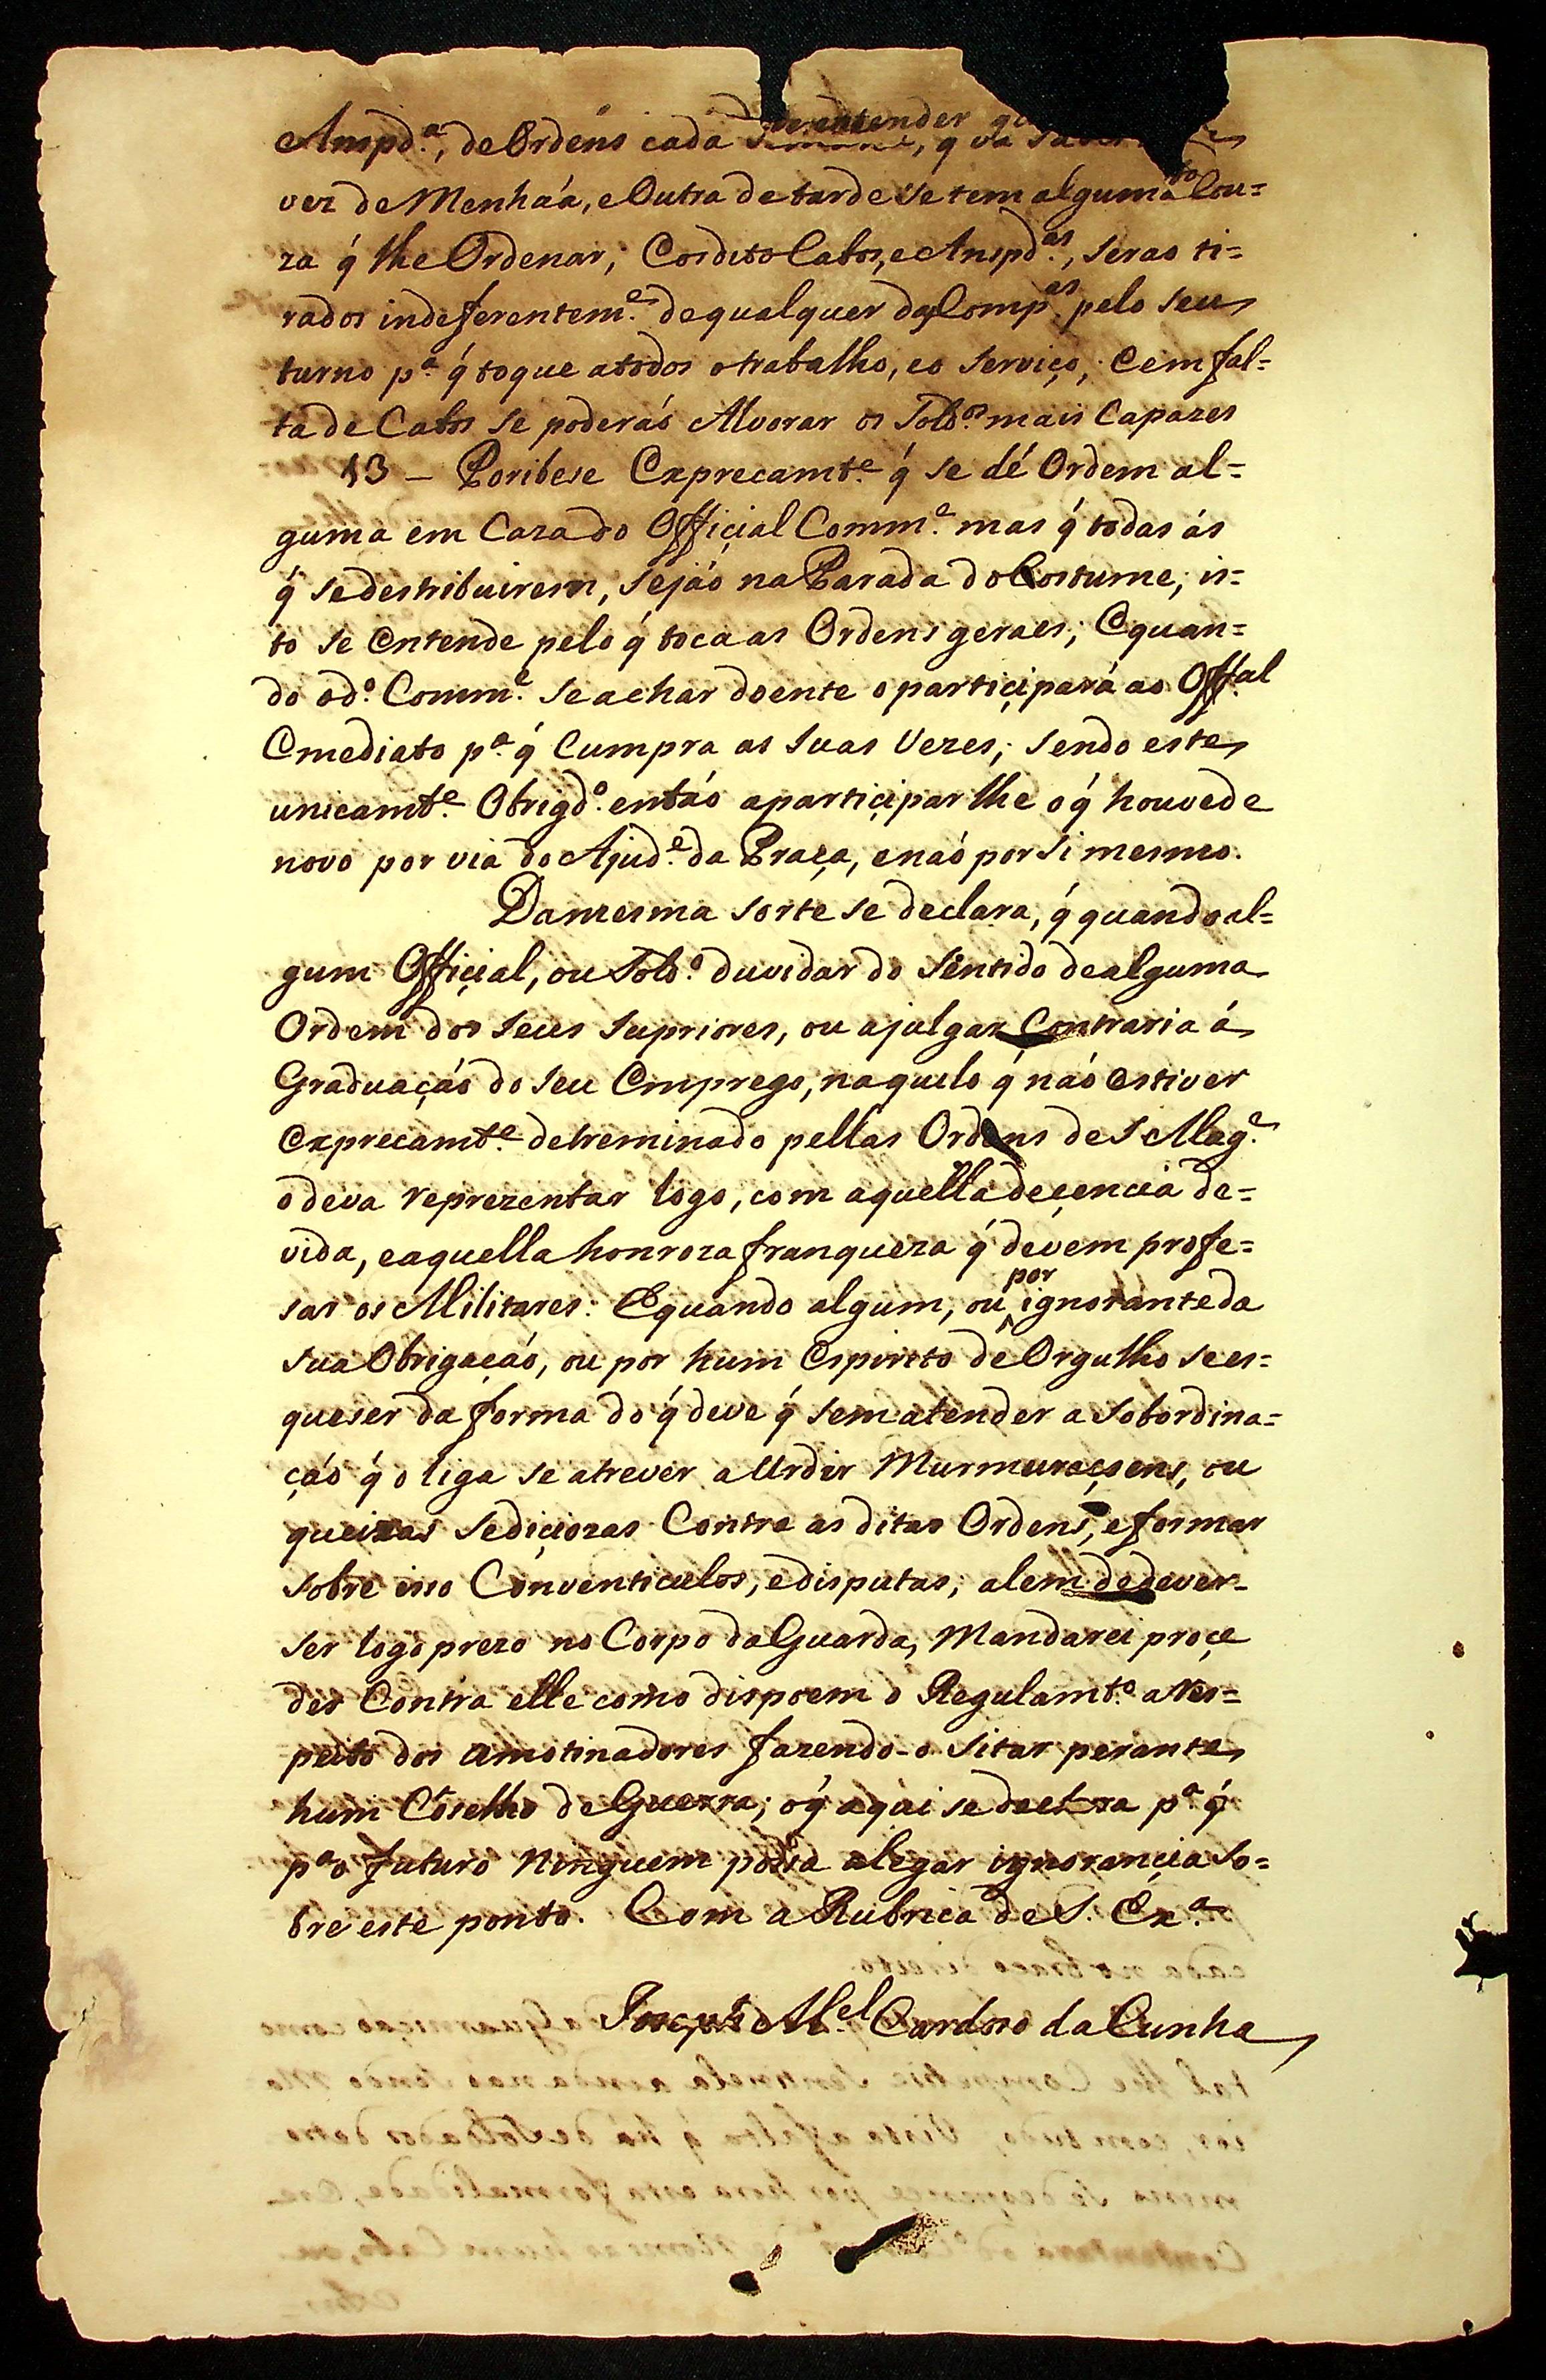 Anspd.ª, de Ordens cada Semana, q́ vá
vez de Menhaá, e Outra de tarde se tem alguma Cou=
za q́ lhe Ordenar; E os ditos Cabos, e Anspd.as, seraó ti=
rados indeferentem.e de qualquer das Comp.as pelo seu
turno p.ª q́ toque a todos o trabalho, e o Serviço; E em fal=
ta de Cabos se poderáó Alvorar os Sold.os mais Capazes
13 – Poribese Expreçamt.e q́ se dé Ordem al=
guma em Caza do Offiçial Comm.e mas q́ todas ás
q́ se destribuirem, sejáó na Parada do Costume; is=
to se Entende pelo q́ toca as Ordens geraes; E quan=
do o d.º Comm.e se achar doente o partiçipará ao Off.al
Emediato p.ª q́ Cumpra as Suas Vezes; Sendo este
unicamt.e Obrigd.º entáó a partiçipar lhe o q́ houve de
novo por via do Ajud.e da Praça, e náó por Si mesmo.
Da mesma Sorte se declara, q́ quando al=
gum Offiçial, ou Sold.º duvidar do Sentido de alguma
Ordem dos Seus Supriores, ou a julgar Contraria á
Graduaçáó do Seu Emprego, naquelo q́ náó Estiver
Expreçamt.e detreminado pellas Ordens de S Mag.e
o deva reprezentar logo, com aquella deçencia de=
vida, e aquella honroza franqueza q́ devem profe=
sar os Militares: E quando algum, ou por ignorante da
Sua Obrigaçáó, ou por hum Espirito de Orgulho se es=
queser da forma do q́ deve q́ sem atender a Sobordina=
çáó q́ o liga se atrever a Urdir Murmuraçoens, ou
queixas Sediçiozas Contra as ditas Ordens, e formar
Sobre isso Conventiculos, e disputas; alem de dever
ser logo prezo no Corpo da Guarda, Mandarei proçe
der Contra elle como dispoem o Regulamt.º a Res=
peito dos amotinadores fazendo-o Sitar perante
hum Cõselho de Guerra; o q́ aqui se declara p.ª q́
p.ª o futuro Ninguem possa alegar ignorançia So=
bre este ponto. Com a Rubrica de S. Ex.ª
M.el Cardozo da Cunha